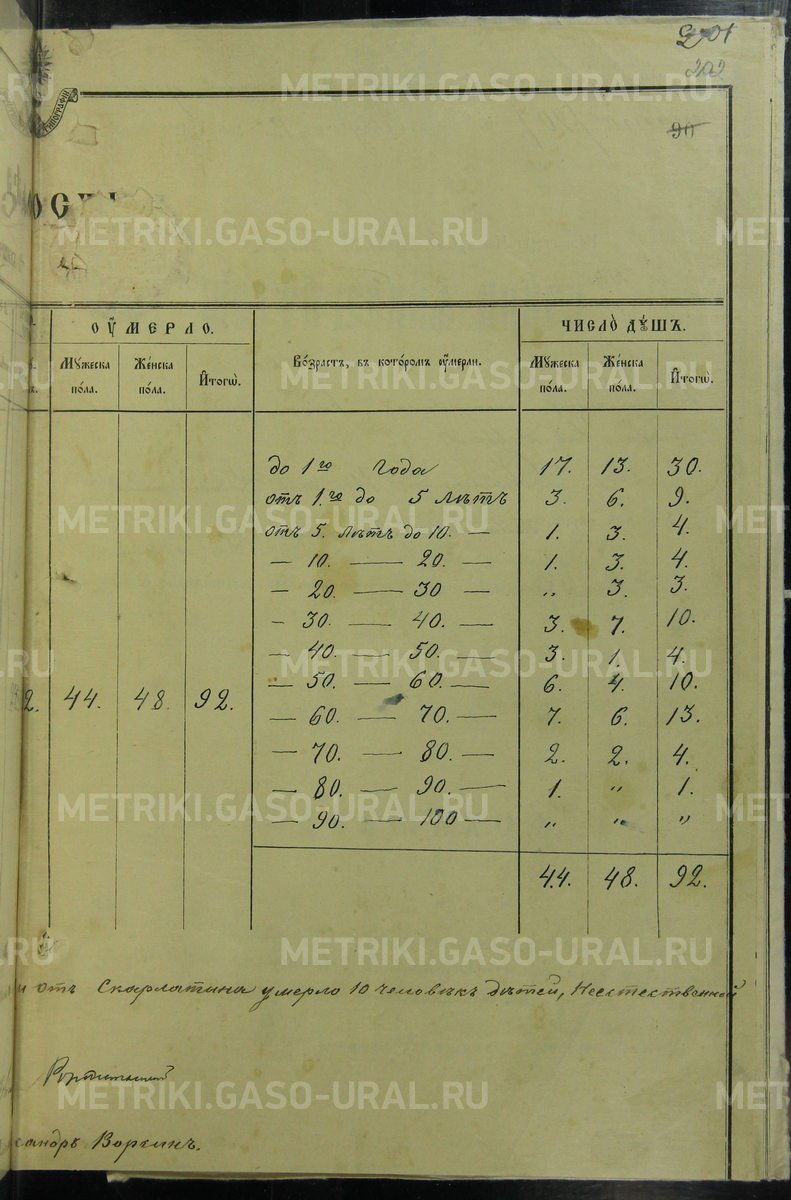 202
90
ТИПОГРАФІИ
METRIKI.GASO-URAL.RU
ОСТ
ОУМЕРЛО. ЧИСЛО ДУШЪ.
Мужеска пола. Женска пола. Итогѡ. Возрастъ, въ которомъ оумерли. Мужеска пола. Женска пола. Итогѡ.
до 1го года 17. 13. 30.
отъ 1.го до 5 лѣтъ 3. 6. 9.
отъ 5. лѣтъ до 10. — 1. 3. 4.
— 10. — 20. — 1. 3. 4.
— 20. — 30 — „ 3. 3.
— 30. — 40. — 3. 7. 10.
— 40. — 50. — 3. 1. 4.
— 50. — 60. — 6. 4. 10.
2. 44. 48. 92. — 60. — 70. — 7. 6. 13.
— 70. — 80. — 2. 2. 4.
— 80. — 90. — 1. „ 1.
— 90. — 100 — „ „ „
44. 48. 92.
и отъ Скарлатина умерло 10 человѣкъ дѣтей, Неестественной
сандръ